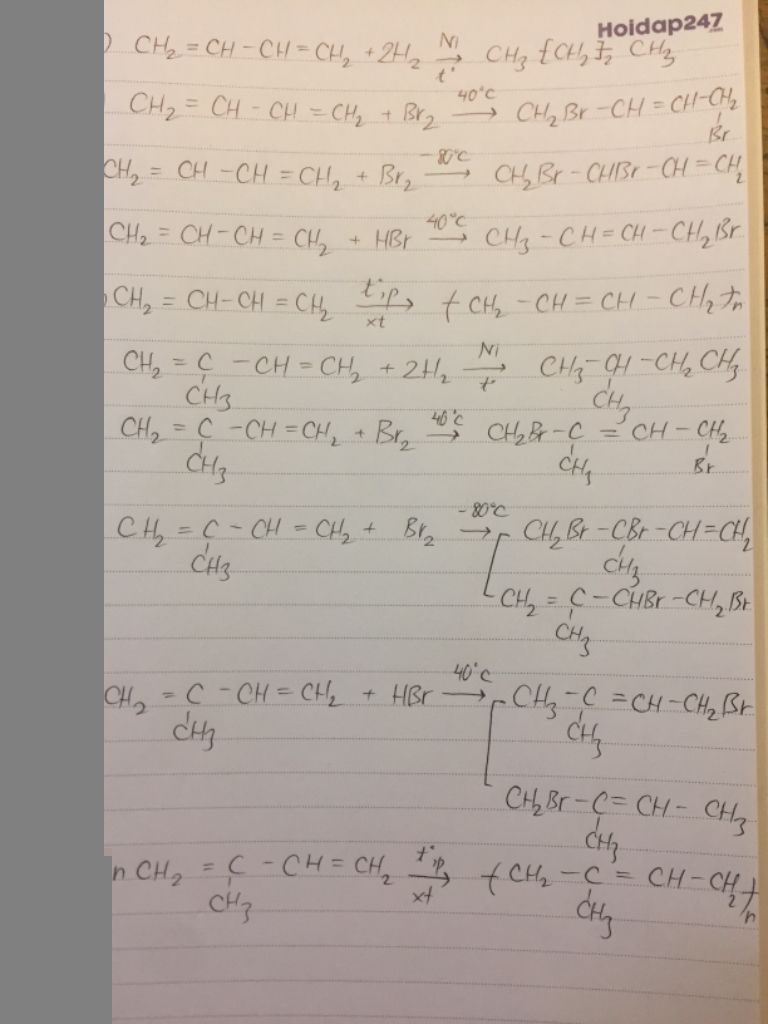 Hoidap247
) CH₂ = CH - CH = CH₂ + 2H₂ Ni t° → CH₃ [CH₂]₂ CH₃
CH₂ = CH - CH = CH₂ + Br₂ 40°C → CH₂Br - CH = CH - CH₂ Br
CH₂ = CH - CH = CH₂ + Br₂ -80°C → CH₂Br - CHBr - CH = CH₂
CH₂ = CH - CH = CH₂ + HBr 40°C → CH₃ - CH = CH - CH₂Br
CH₂ = CH - CH = CH₂ t°,p xt → ( CH₂ - CH = CH - CH₂ )n
CH₂ = C - CH = CH₂ + 2H₂ Ni t° → CH₃ - CH - CH₂ CH₃
CH₃ CH₃
CH₂ = C - CH = CH₂ + Br₂ 40°C → CH₂Br - C = CH - CH₂
CH₃ CH₃ Br
CH₂ = C - CH = CH₂ + Br₂ -80°C → CH₂Br - CBr - CH = CH₂
CH₃ CH₃
CH₂ = C - CHBr - CH₂Br
CH₃
CH₂ = C - CH = CH₂ + HBr 40°C → CH₃ - C = CH - CH₂Br
CH₃ CH₃
CH₂Br - C = CH - CH₃
CH₃
n CH₂ = C - CH = CH₂ t°,p xt → ( CH₂ - C = CH - CH₂ )n
CH₃ CH₃